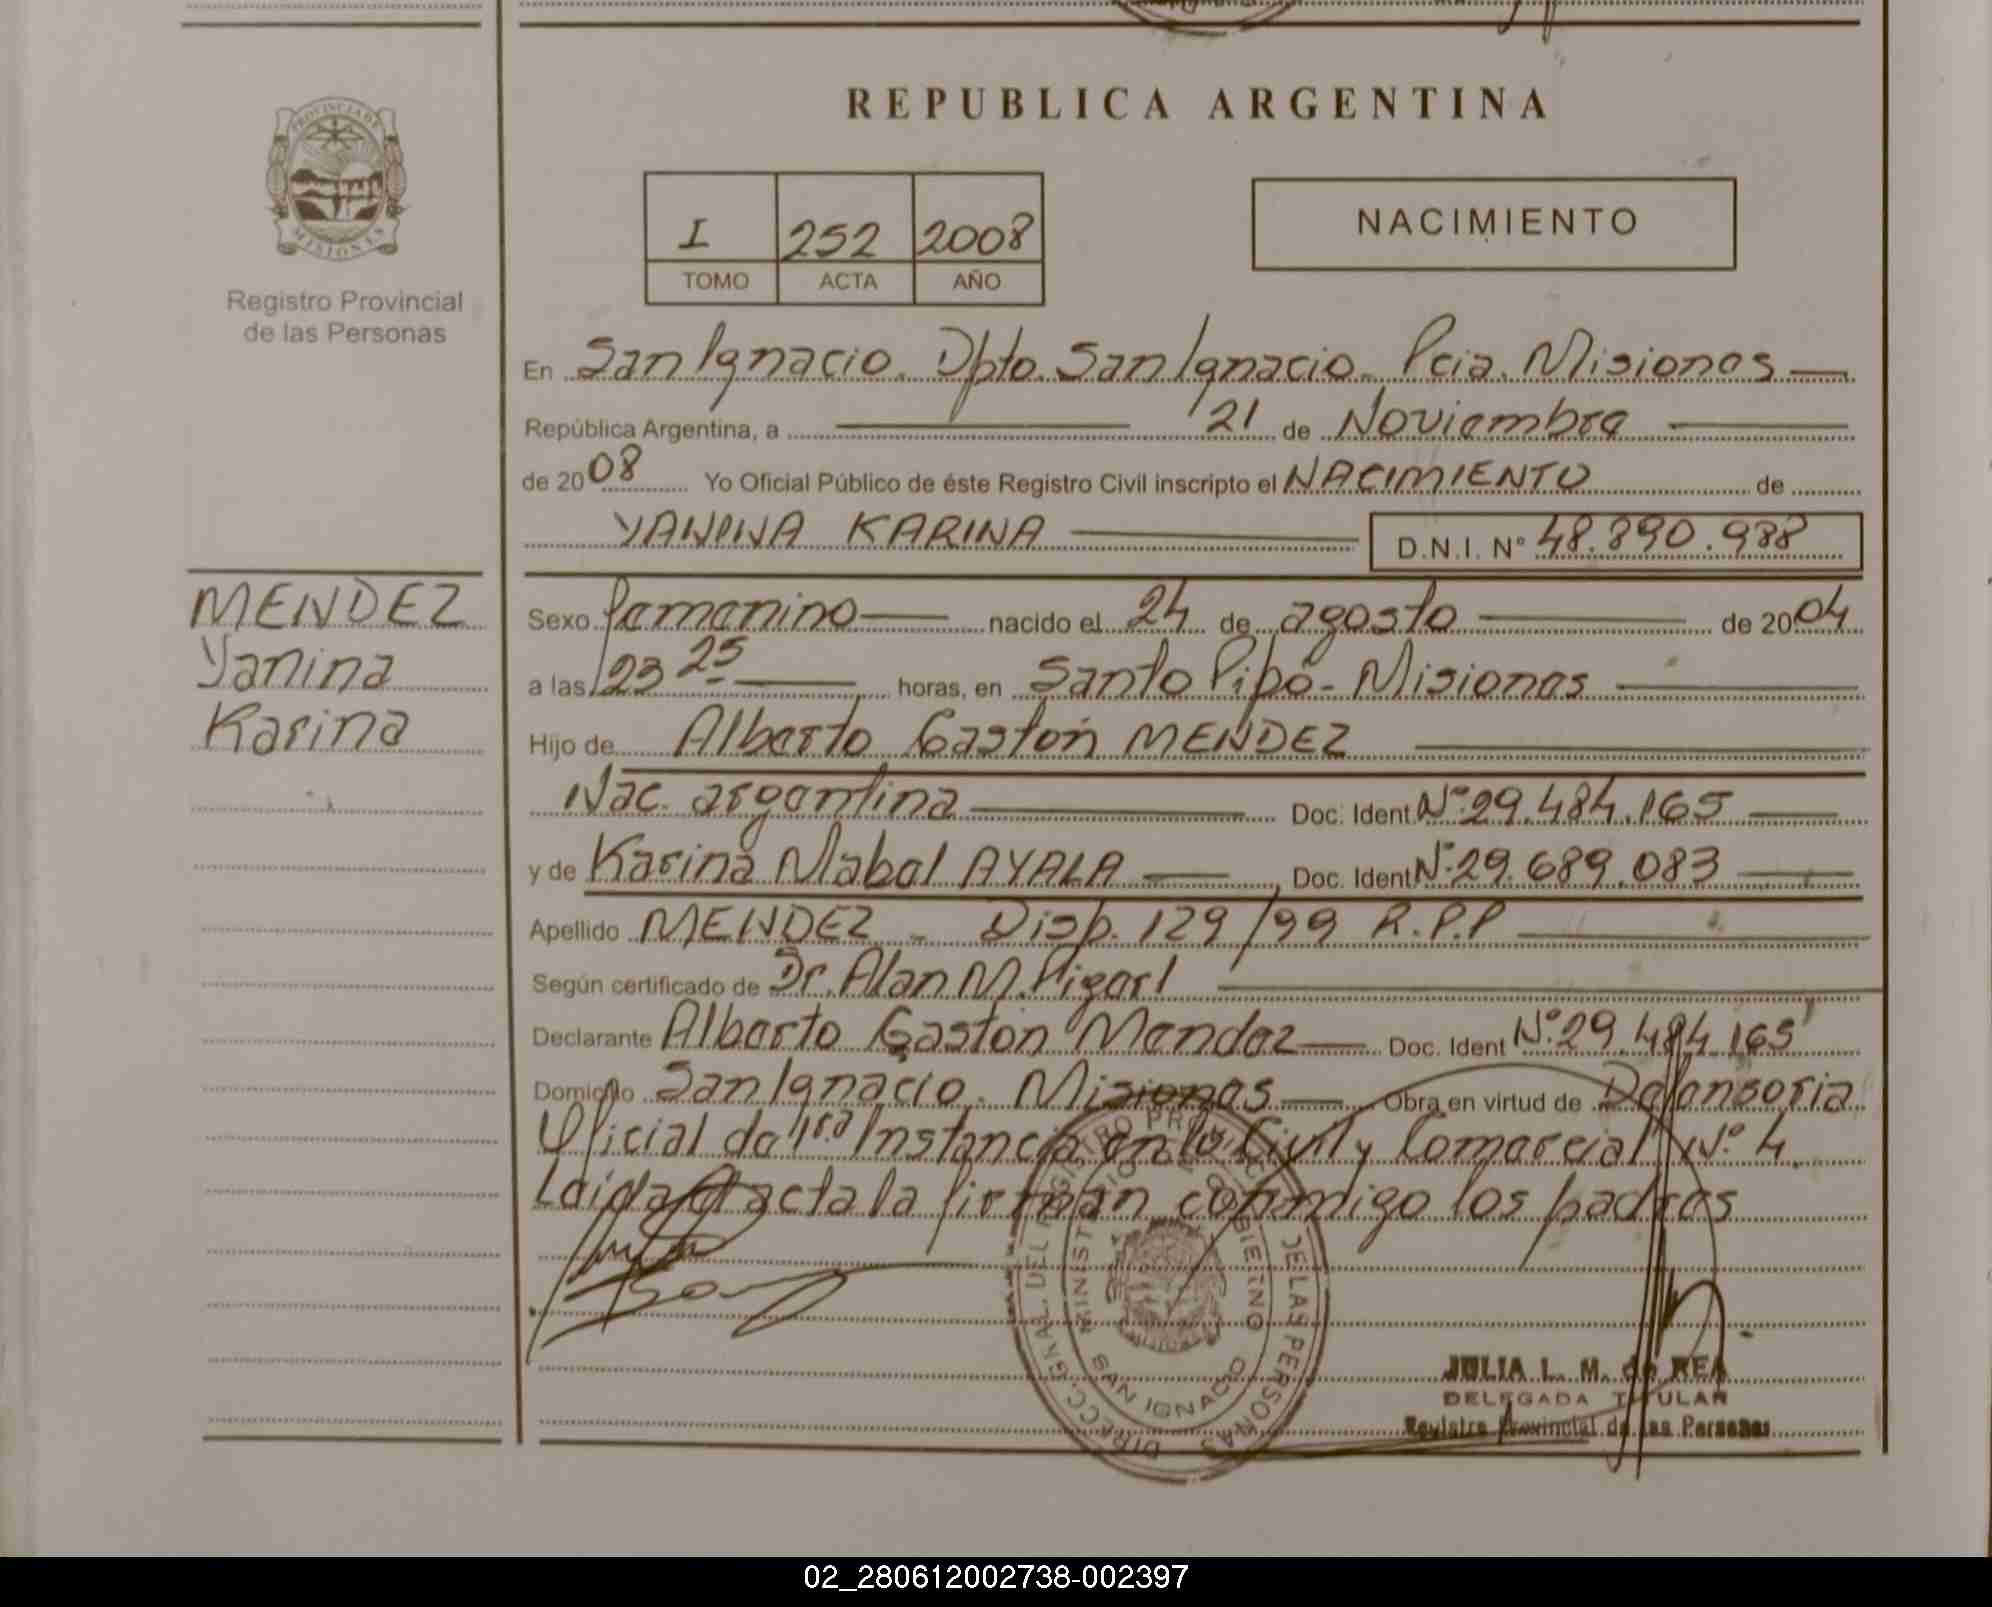 REPUBLICA ARGENTINA
PROVINCIA DE
MISIONES
Registro Provincial
de las Personas
I 252 2008
TOMO ACTA AÑO
NACIMIENTO
En San Ignacio. Dpto. San Ignacio. Pcia. Misiones
República Argentina, a 21 de Noviembre
de 2008 Yo Oficial Público de éste Registro Civil inscripto el NACIMIENTO de
YANINA KARINA D.N.I. Nº 48.890.988
MENDEZ
Yanina
Karina
Sexo femenino nacido el 24 de agosto de 2004
a las 23 25 horas, en Santo Pipó - Misiones
Hijo de Alberto Gastón MENDEZ
Nac. argentina Doc. Ident Nº 29.484.165
y de Karina Mabel AYALA Doc. Ident Nº 29.689.083
Apellido MENDEZ - Disp. 129/99 R.P.P
Según certificado de Dr. Alan M.
Declarante Alberto Gastón Mendez Doc. Ident Nº 29.484.165
Domicilio San Ignacio. Misiones Obra en virtud de Defensoria
Oficial de 1era Instancia en lo Civil y Comercial Nº 4.
Leída el acta la firman conmigo los padres
DIRECC. GRAL. DEL REGISTRO PROVINCIAL DE LAS PERSONAS
MINISTERIO DE GOBIERNO
SAN IGNACIO
JULIA L. M. de REA
DELEGADA TITULAR
Registro Provincial de las Personas
02_280612002738-002397